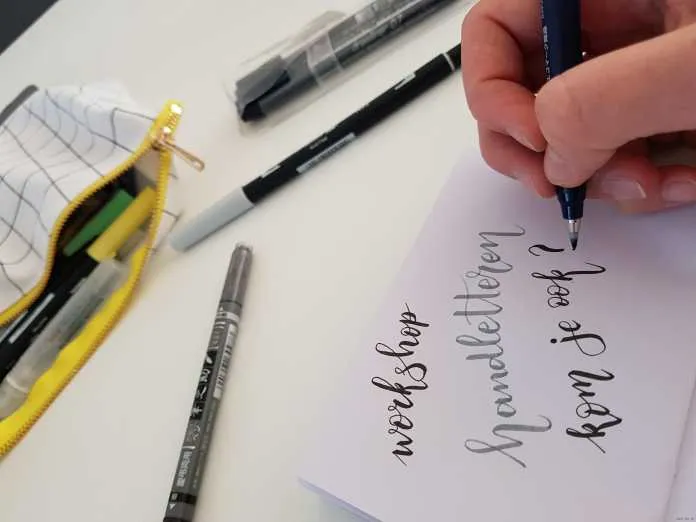 workshop
handletteren
kom je ook?